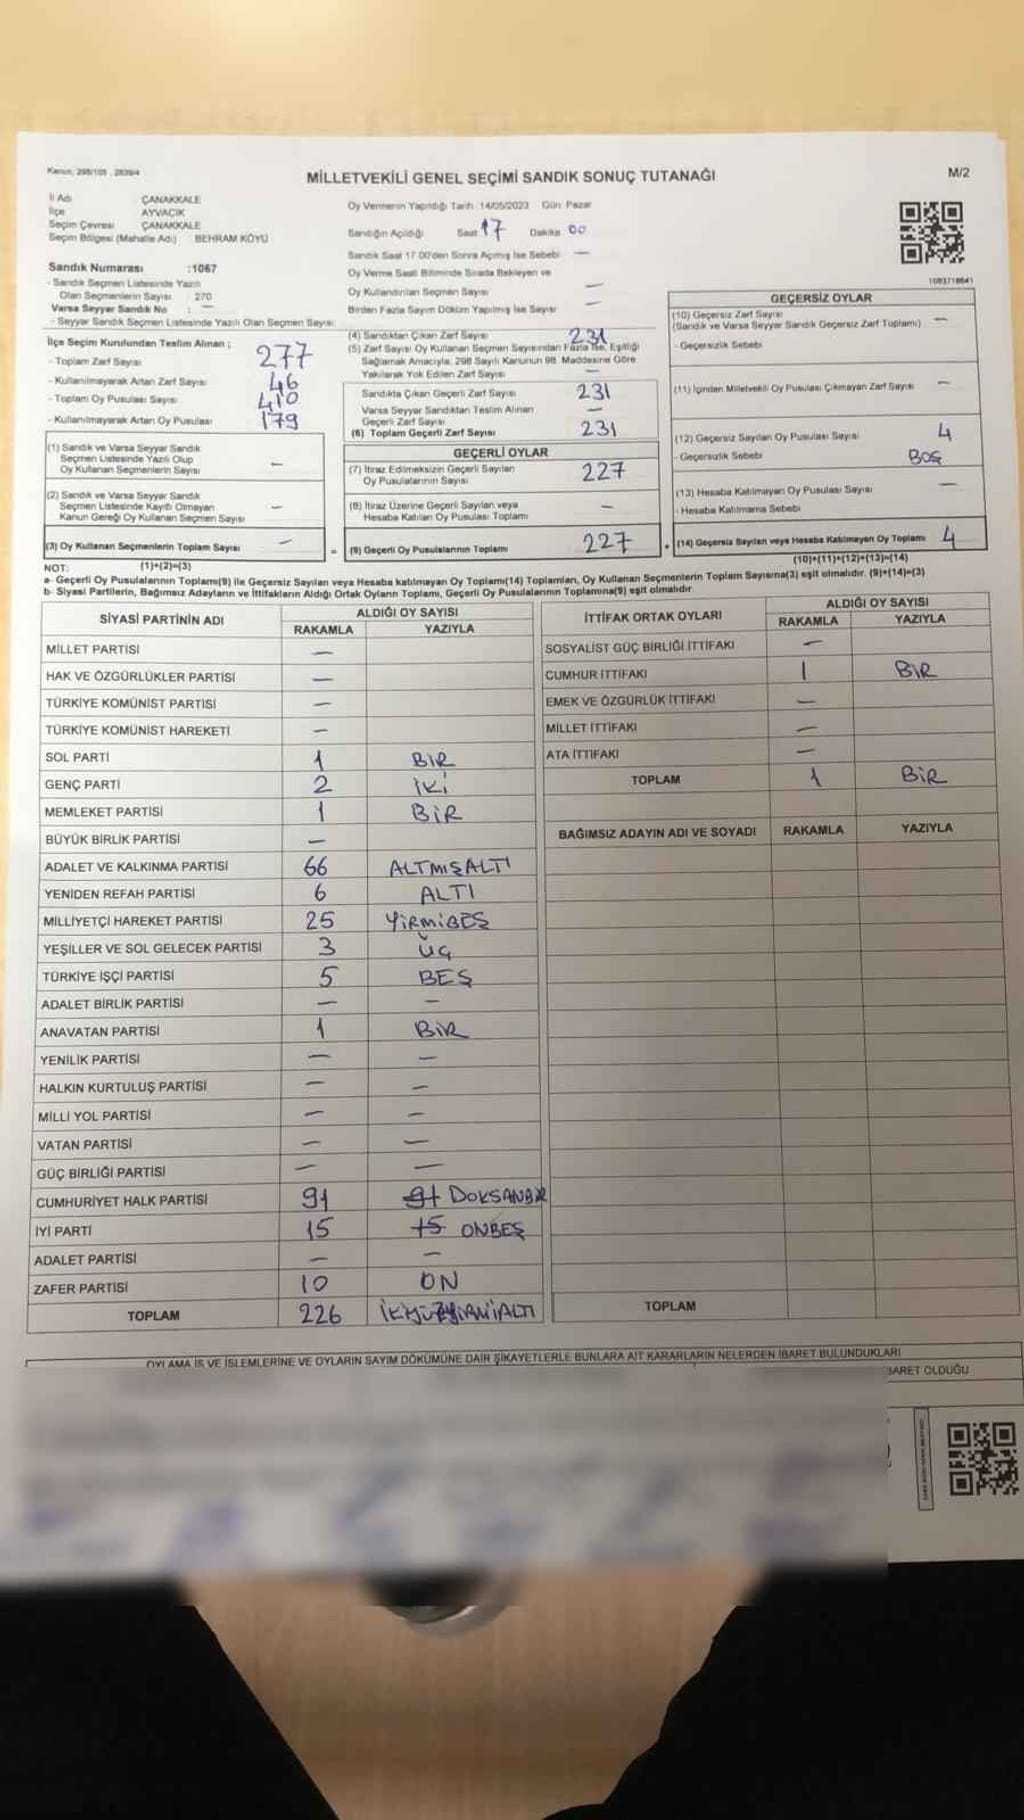 Kanun: 298/105 , 2839/4
MİLLETVEKİLİ GENEL SEÇİMİ SANDIK SONUÇ TUTANAĞI
M/2
İl Adı ÇANAKKALE
İlçe AYVACIK
Seçim Çevresi ÇANAKKALE
Seçim Bölgesi (Mahalle Adı) BEHRAM KÖYÜ
Sandık Numarası :1067
- Sandık Seçmen Listesinde Yazılı
Olan Seçmenlerin Sayısı 270
Varsa Seyyar Sandık No : —
- Seyyar Sandık Seçmen Listesinde Yazılı Olan Seçmen Sayısı:
Oy Vermenin Yapıldığı Tarih :14/05/2023 Gün: Pazar
Sandığın Açıldığı Saat 17 Dakika 00
Sandık Saat 17.00'den Sonra Açılmış İse Sebebi —
Oy Verme Saati Bitiminde Sırada Bekleyen ve
Oy Kullandırılan Seçmen Sayısı —
Birden Fazla Sayım Döküm Yapılmış İse Sayısı —
1083718641
İlçe Seçim Kurulundan Teslim Alınan ;
- Toplam Zarf Sayısı 277
- Kullanılmayarak Artan Zarf Sayısı 46
- Toplam Oy Pusulası Sayısı 410
- Kullanılmayarak Artan Oy Pusulası 179
(1) Sandık ve Varsa Seyyar Sandık
Seçmen Listesinde Yazılı Olup
Oy Kullanan Seçmenlerin Sayısı —
(2) Sandık ve Varsa Seyyar Sandık
Seçmen Listesinde Kayıtlı Olmayan
Kanun Gereği Oy Kullanan Seçmen Sayısı —
(3) Oy Kullanan Seçmenlerin Toplam Sayısı —
(1)+(2)=(3)
(4) Sandıktan Çıkan Zarf Sayısı 231
(5) Zarf Sayısı Oy Kullanan Seçmen Sayısından Fazla İse, Eşitliği
Sağlamak Amacıyla, 298 Sayılı Kanunun 98. Maddesine Göre
Yakılarak Yok Edilen Zarf Sayısı —
Sandıkta Çıkan Geçerli Zarf Sayısı 231
Varsa Seyyar Sandıktan Teslim Alınan
Geçerli Zarf Sayısı —
(6) Toplam Geçerli Zarf Sayısı 231
GEÇERLİ OYLAR
(7) İtiraz Edilmeksizin Geçerli Sayılan
Oy Pusulalarının Sayısı 227
(8) İtiraz Üzerine Geçerli Sayılan veya
Hesaba Katılan Oy Pusulası Toplamı —
= (9) Geçerli Oy Pusulalarının Toplamı 227
GEÇERSİZ OYLAR
(10) Geçersiz Zarf Sayısı
(Sandık ve Varsa Seyyar Sandık Geçersiz Zarf Toplamı) —
- Geçersizlik Sebebi
(11) İçinden Milletvekili Oy Pusulası Çıkmayan Zarf Sayısı —
(12) Geçersiz Sayılan Oy Pusulası Sayısı 4
- Geçersizlik Sebebi BOŞ
(13) Hesaba Katılmayan Oy Pusulası Sayısı —
- Hesaba Katılmama Sebebi
+ (14) Geçersiz Sayılan veya Hesaba Katılmayan Oy Toplamı 4
(10)+(11)+(12)+(13)=(14)
NOT:
a- Geçerli Oy Pusulalarının Toplamı(9) ile Geçersiz Sayılan veya Hesaba katılmayan Oy Toplamı(14) Toplamları, Oy Kullanan Seçmenlerin Toplam Sayısına(3) eşit olmalıdır. (9)+(14)=(3)
b- Siyasi Partilerin, Bağımsız Adayların ve İttifakların Aldığı Ortak Oyların Toplamı, Geçerli Oy Pusulalarının Toplamına(9) eşit olmalıdır.
SİYASİ PARTİNİN ADI ALDIĞI OY SAYISI
RAKAMLA YAZIYLA
MİLLET PARTİSİ —
HAK VE ÖZGÜRLÜKLER PARTİSİ —
TÜRKİYE KOMÜNİST PARTİSİ —
TÜRKİYE KOMÜNİST HAREKETİ —
SOL PARTİ 1 BİR
GENÇ PARTİ 2 İKİ
MEMLEKET PARTİSİ 1 BİR
BÜYÜK BİRLİK PARTİSİ —
ADALET VE KALKINMA PARTİSİ 66 ALTMIŞALTI
YENİDEN REFAH PARTİSİ 6 ALTI
MİLLİYETÇİ HAREKET PARTİSİ 25 YİRMİBEŞ
YEŞİLLER VE SOL GELECEK PARTİSİ 3 ÜÇ
TÜRKİYE İŞÇİ PARTİSİ 5 BEŞ
ADALET BİRLİK PARTİSİ — —
ANAVATAN PARTİSİ 1 BİR
YENİLİK PARTİSİ — —
HALKIN KURTULUŞ PARTİSİ — —
MİLLİ YOL PARTİSİ — —
VATAN PARTİSİ — —
GÜÇ BİRLİĞİ PARTİSİ — —
CUMHURİYET HALK PARTİSİ 91 91 DOKSANBİR
İYİ PARTİ 15 15 ONBEŞ
ADALET PARTİSİ — —
ZAFER PARTİSİ 10 ON
TOPLAM 226 İKİYÜZYİRMİALTI
İTTİFAK ORTAK OYLARI ALDIĞI OY SAYISI
RAKAMLA YAZIYLA
SOSYALİST GÜÇ BİRLİĞİ İTTİFAKI —
CUMHUR İTTİFAKI 1 BİR
EMEK VE ÖZGÜRLÜK İTTİFAKI —
MİLLET İTTİFAKI —
ATA İTTİFAKI —
TOPLAM 1 BİR
BAĞIMSIZ ADAYIN ADI VE SOYADI RAKAMLA YAZIYLA
TOPLAM
OYLAMA İŞ VE İŞLEMLERİNE VE OYLARIN SAYIM DÖKÜMÜNE DAİR ŞİKAYETLERLE BUNLARA AİT KARARLARIN NELERDEN İBARET BULUNDUKLARI
BARET OLDUĞU